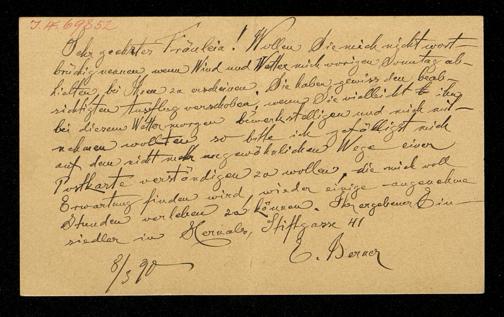 I.N. 69852
Sehr geehrtes Fräulein! Wollen Sie mich nicht wort-
brüchig nennen wenn Wind und Wetter mich vorigen Sonntag ab-
hielten, bei Ihnen zu erscheinen. Sie haben gewiss den beab-
sichtigten Ausflug verschoben, wenn Sie vielleicht ihn
bei diesem Wetter morgen bewerkstelligen und mich mit-
nehmen wollten so bitte ich gefälligst mich
auf dem nicht mehr ungewöhnlichen Wege einer
Postkarte verständigen zu wollen, die mich voll
Erwartung finden wird, wieder einige angenehme
Stunden verleben zu können. Ihr ergebener Ein-
siedler in Hernals, Stiftgasse 41
E. Berner
8/3 90